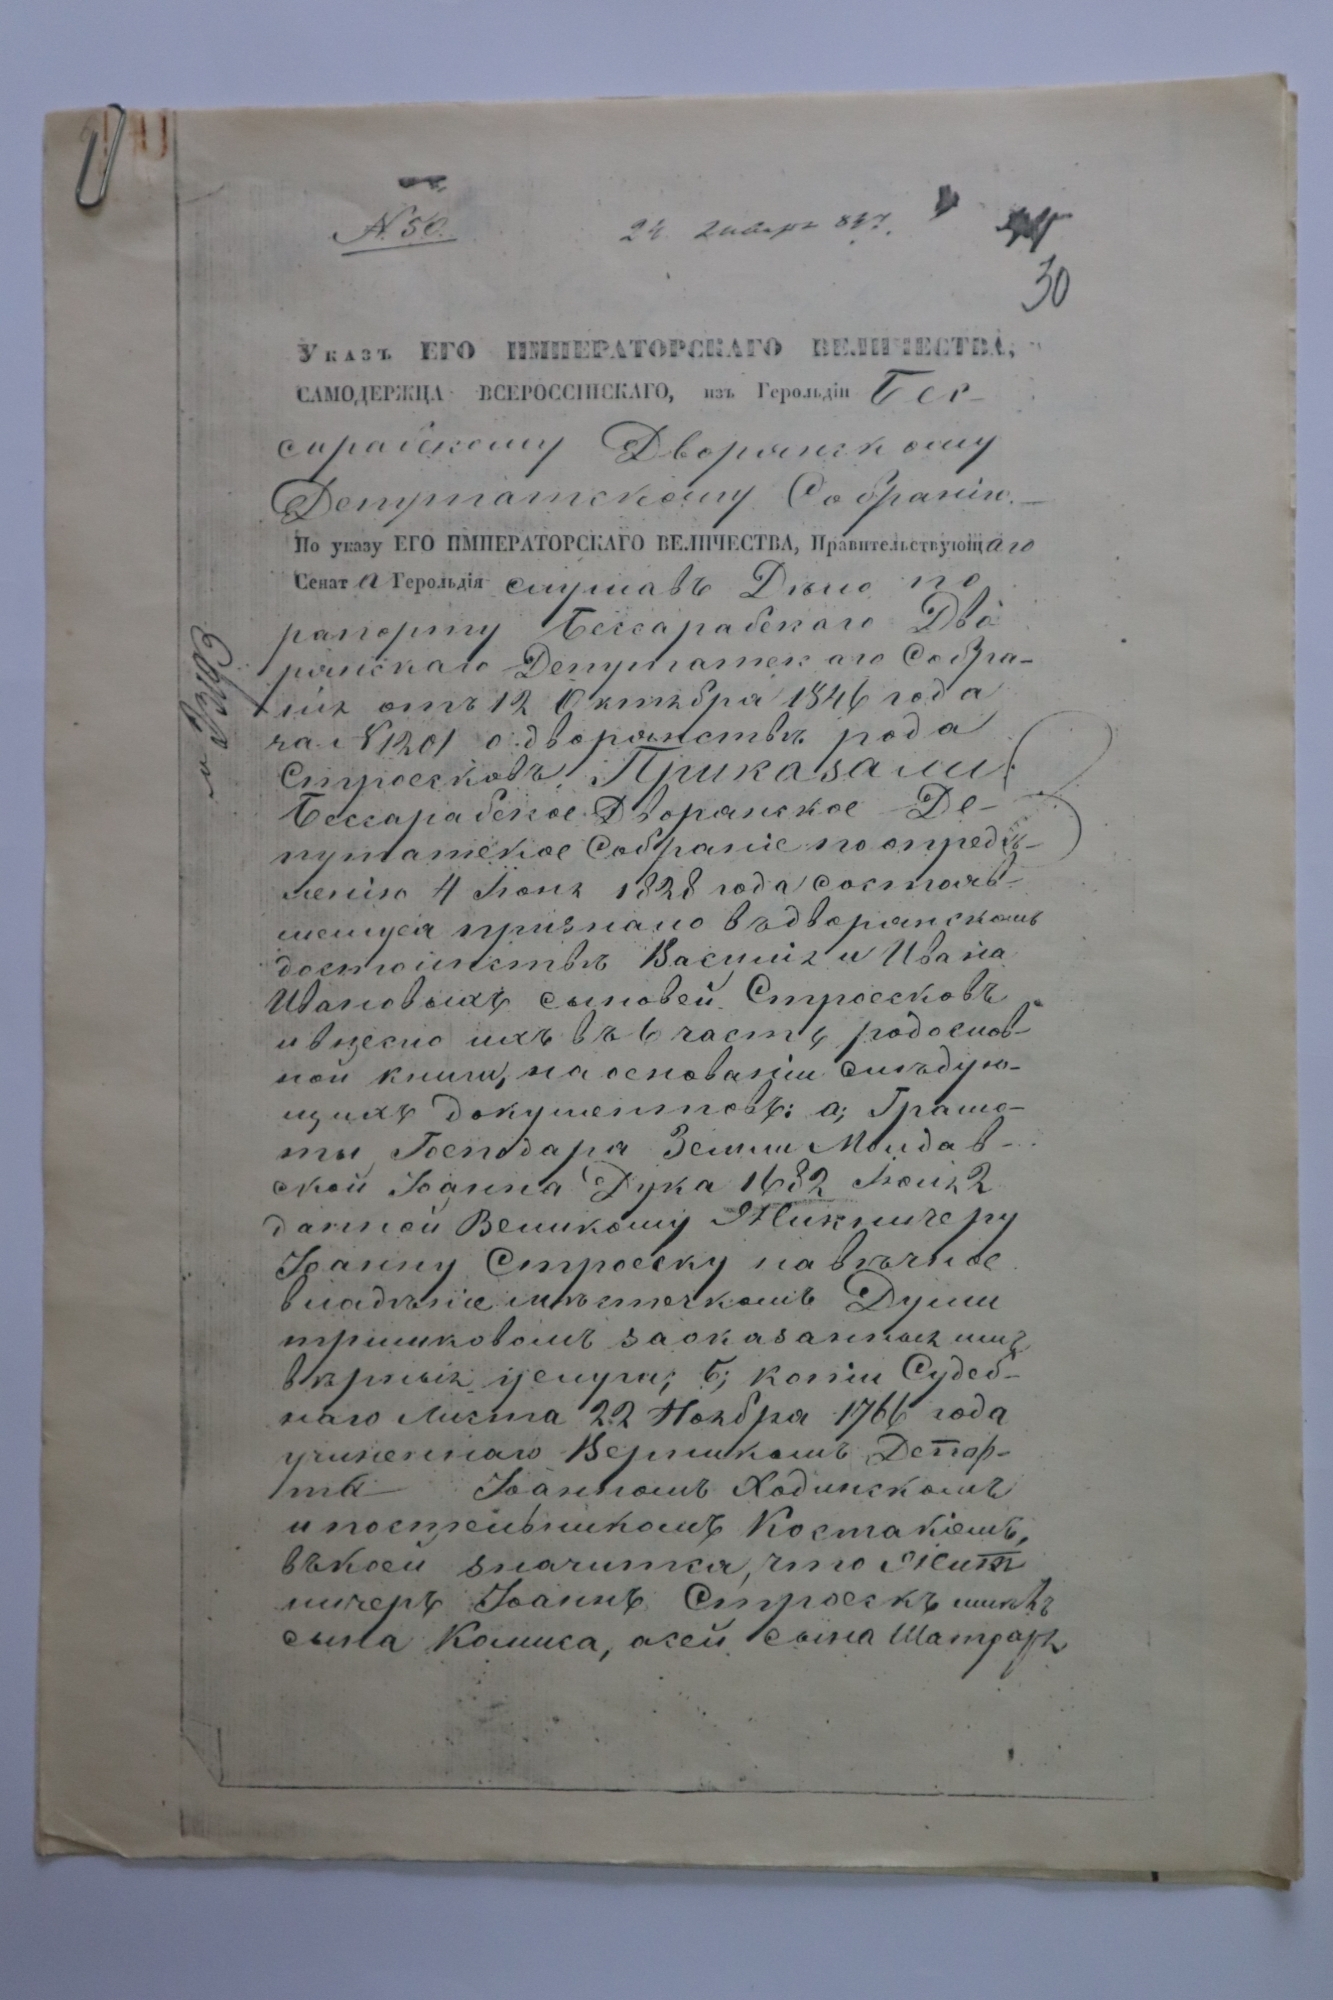 N. 50.
24. Января 847.
30
Указъ ЕГО ИМПЕРАТОРСКАГО ВЕЛИЧЕСТВА,
САМОДЕРЖЦА ВСЕРОССІЙСКАГО, изъ Герольдіи Бес-
сарабскому Дворянскому
Депутатскому Собранію.
По указу ЕГО ИМПЕРАТОРСКАГО ВЕЛИЧЕСТВА, Правительствующаго
Сената Герольдія слушавъ Дѣло по
рапорту Бессарабскаго Дво
рянскаго Депутатскаго Собра-
нія отъ 12 Октября 1846 года
за N 1201 о дворянствѣ рода
Строесковъ. Приказали:
Бессарабское Дворянское Де-
путатское Собраніе по опредѣ-
ленію 4 Іюня 1828 года состояв-
шемуся признало въ дворянскомъ
достоинствѣ Василія и Ивана
Ивановыхъ сыновей Строесковъ
и внесло ихъ въ 6 часть родослов-
ной книги, на основаніи слѣдую-
щихъ документовъ: а; Грамо-
ты Господаря Земли Молдав-
ской Іоанна Дука 1682 Іюля 2
данной Великому Житничеру
Іоанну Строеску на вѣчное
владѣніе мѣстечкомъ Думи
триковомъ за оказанныя имъ
вѣрныя услуги; б; копіи Судеб-
наго Листа 22 Ноября 1766 года
учиненнаго Ворникомъ Депор-
та Іоанномъ Ходинскомъ
и постельникомъ Костакіемъ,
въ коей значится, что Жит
ничеръ Іоаннъ Строескъ имѣлъ
сына Комиса, а сей сына Шатраря